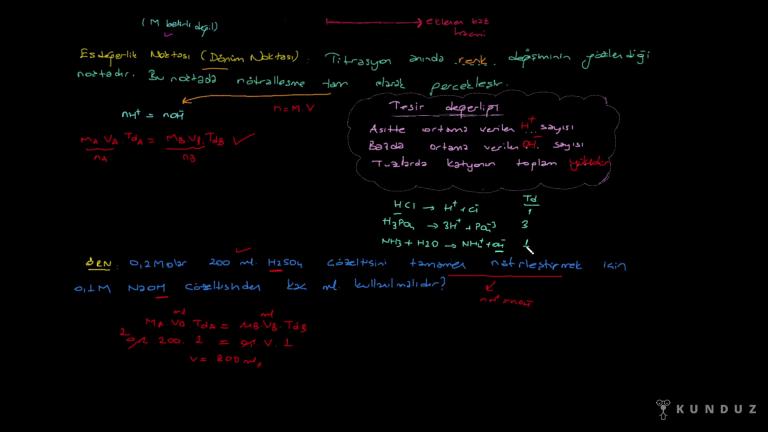 (M belirli değil) → eklenen baz
hacmi
Eşdeğerlik Noktası (Dönüm Noktası): Titrasyon anında renk değişiminin gözlendiği
noktadır. Bu noktada nötralleşme tam olarak gerçekleşir.
nH⁺ = nOH⁻
n = M.V
MA VA TdA = MB VB TdB ✓
nA nB
Tesir değerliği
Asitte ortama verilen H⁺ sayısı
Bazda ortama verilen OH⁻ sayısı
Tuzlarda katyonun toplam yükü
Td
HCl → H⁺ + Cl⁻ 1
H3PO4 → 3H⁺ + PO4⁻³ 3
NH3 + H2O → NH4⁺ + OH⁻ 1
ÖRN: 0,2 Molar 200 ml H2SO4 çözeltisini tamamen nötrleştirmek için
0,1M NaOH çözeltisinden kaç ml kullanılmalıdır?
nH⁺ = nOH⁻
ml ml
MA VA TdA = MB VB TdB
2
0,2 200 2 = 0,1 V 1
V = 800 ml
KUNDUZ